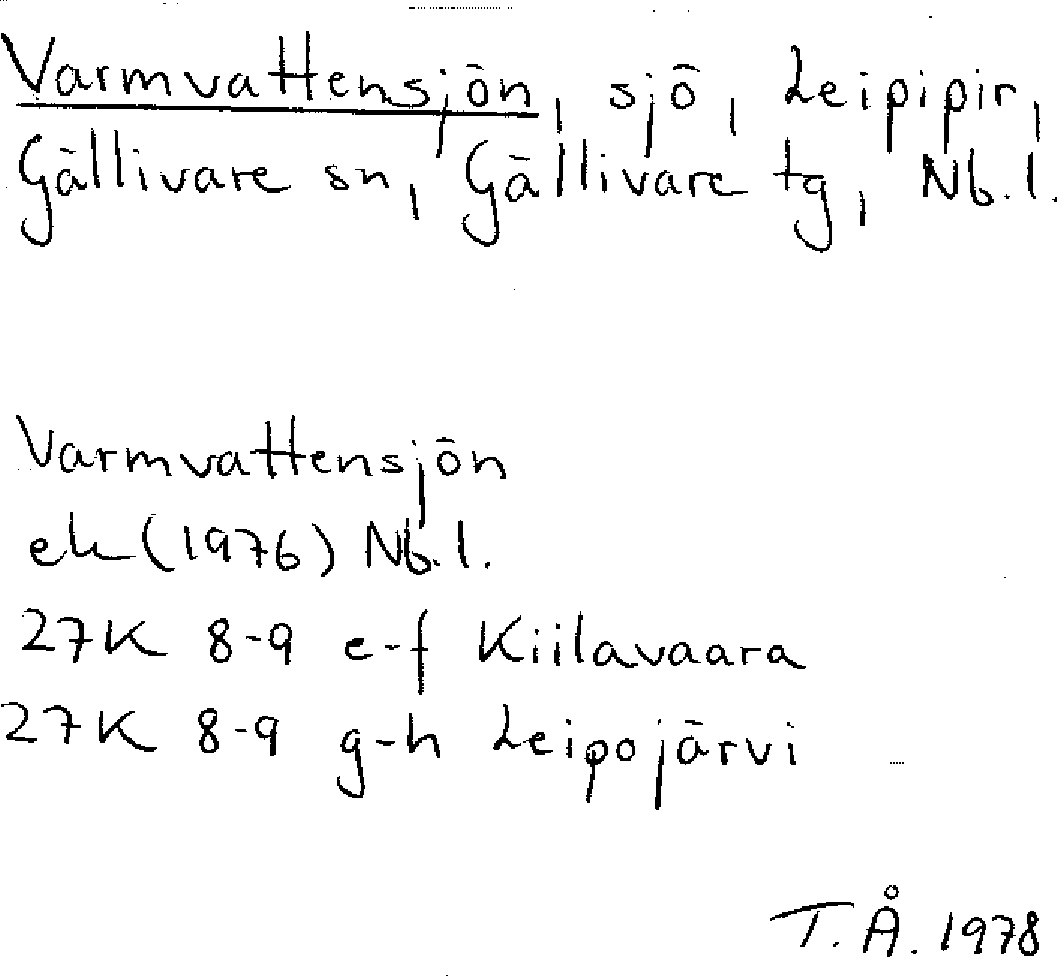 Varmvattensjön, sjö, Leipipir,
Gällivare sn, Gällivare tg, Nb.l.
Varmvattensjön
ek (1976) Nb.l.
27K 8-9 e-f Kiilavaara
27K 8-9 g-h Leipojärvi
T.Å. 1978